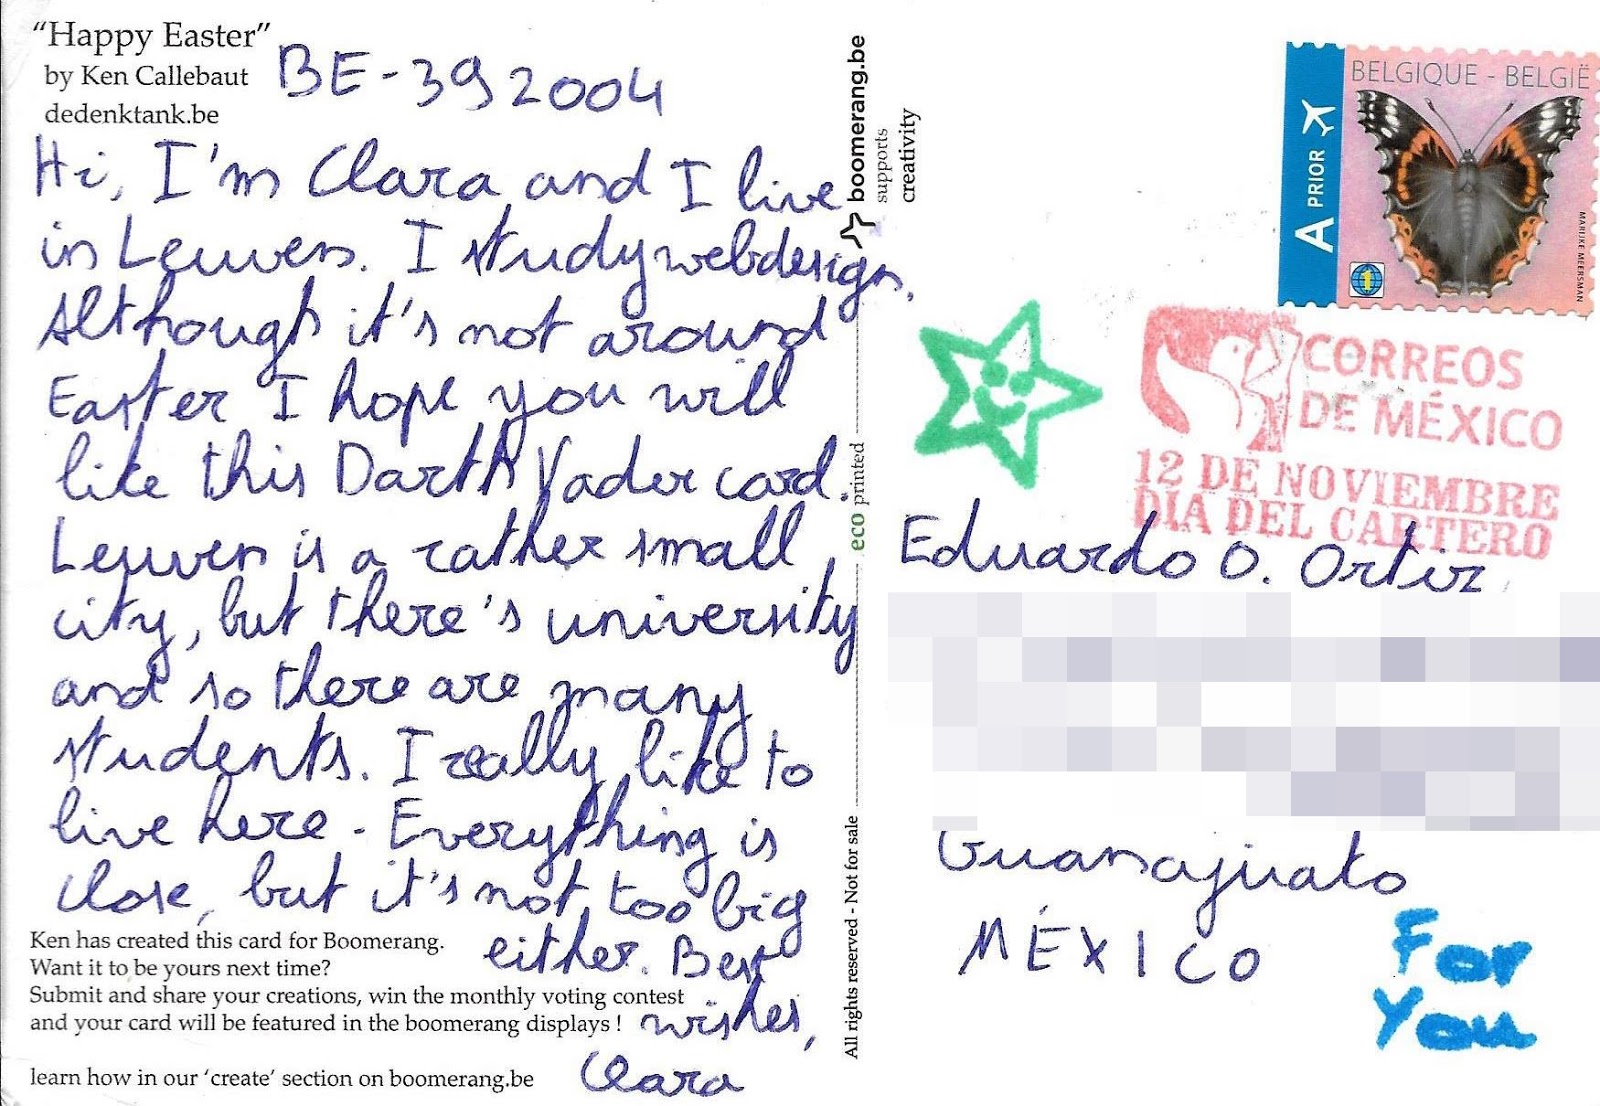 “Happy Easter”
by Ken Callebaut
dedenktank.be
BE-392004
Hi, I'm Clara and I live
in Leuven. I study webdesign.
Although it's not around
Easter I hope you will
like this Darth Vader card.
Leuven is a rather small
city, but there's university
and so there are many
students. I really like to
live here. Everything is
close, but it's not too big
either. Best
wishes,
Clara
Ken has created this card for Boomerang.
Want it to be yours next time?
Submit and share your creations, win the monthly voting contest
and your card will be featured in the boomerang displays !
learn how in our ‘create’ section on boomerang.be
boomerang.be
supports
creativity
eco printed
All rights reserved - Not for sale
BELGIQUE - BELGIË
A PRIOR
1
MARIJKE MEERSMAN
CORREOS
DE MÉXICO
12 DE NOVIEMBRE
DÍA DEL CARTERO
Eduardo O. Ortiz
Guanajuato
MÉXICO
For
You